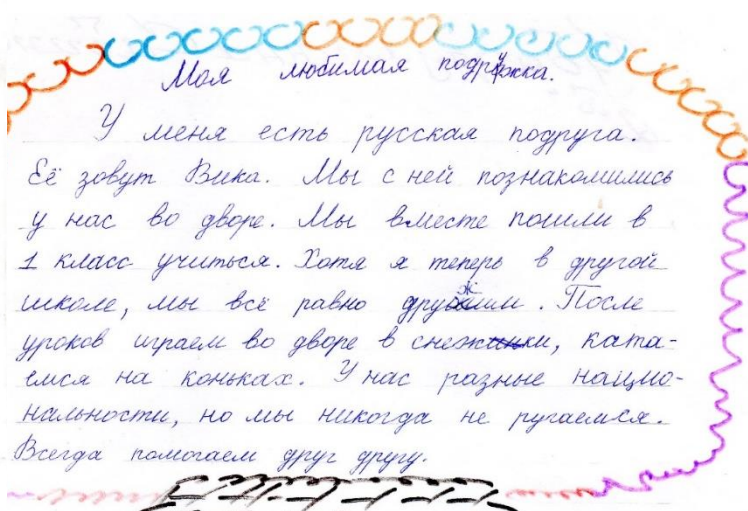 Моя любимая подружка.
У меня есть русская подруга.
Её зовут Вика. Мы с ней познакомились
у нас во дворе. Мы вместе пошли в
1 класс учиться. Хотя я теперь в другой
школе, мы всё равно дружим. После
уроков играем во дворе в снежки, ката-
емся на коньках. У нас разные нацио-
нальности, но мы никогда не ругаемся.
Всегда помогаем друг другу.